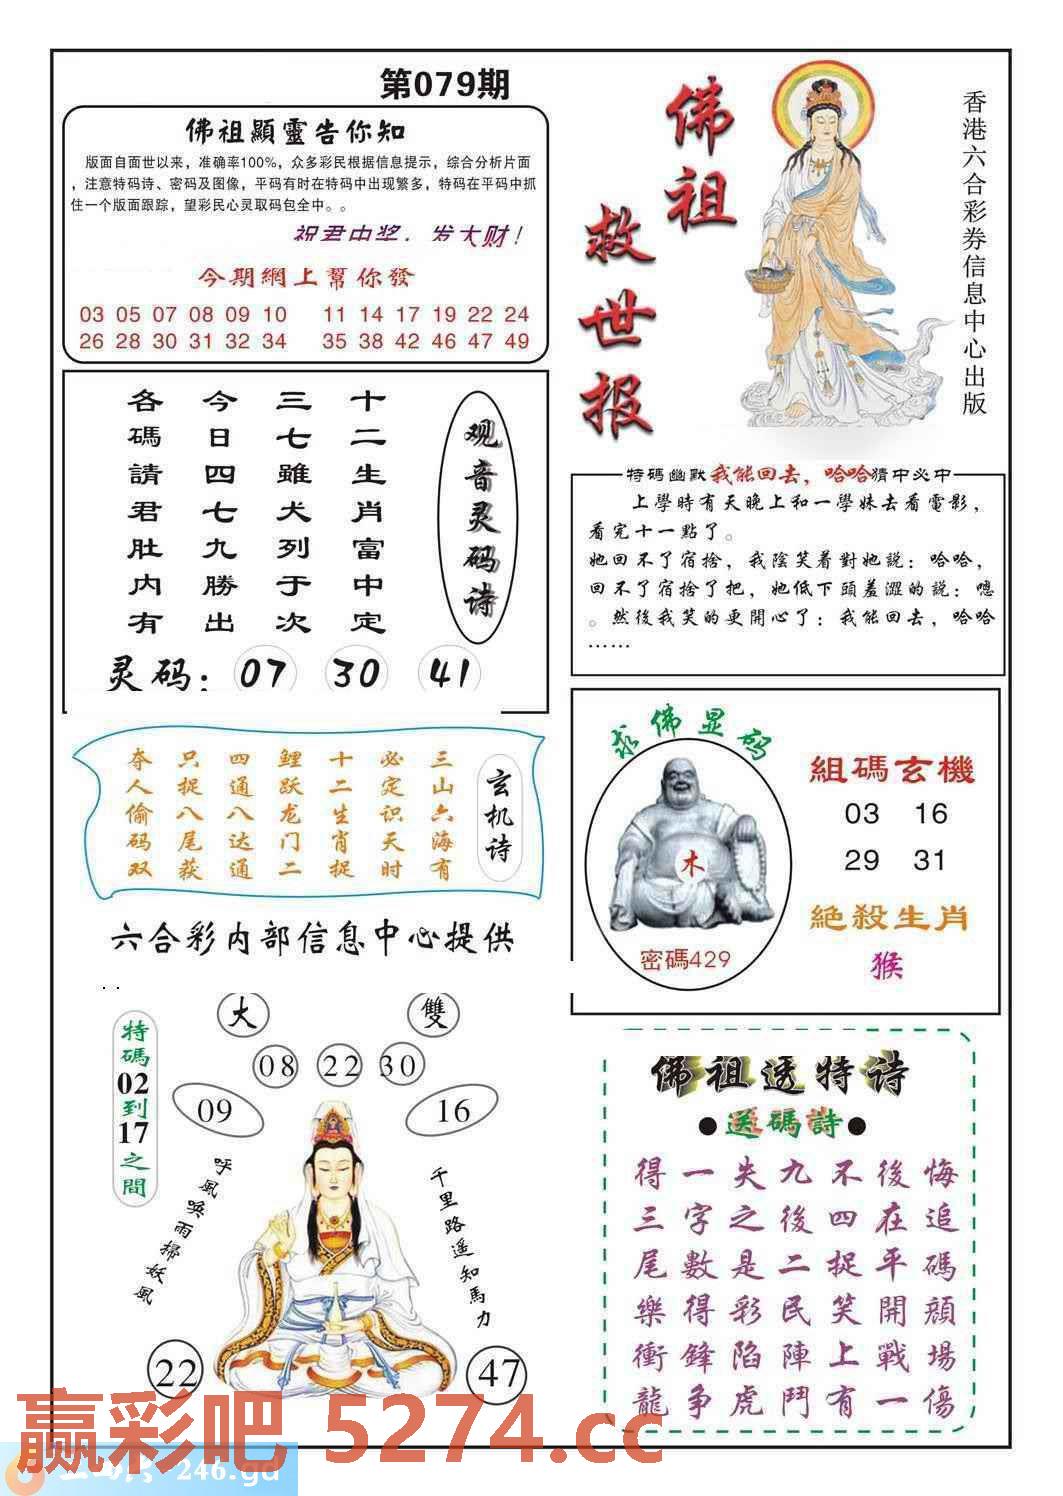 第079期
佛祖顯靈告你知
版面自面世以来，准确率100%，众多彩民根据信息提示，综合分析片面
，注意特码诗、密码及图像，平码有时在特码中出现繁多，特码在平码中抓
住一个版面跟踪，望彩民心灵取码包全中。。
祝君中奖，发大财！
今期網上幫你發
03 05 07 08 09 10 11 14 17 19 22 24
26 28 30 31 32 34 35 38 42 46 47 49
佛祖
救世报
香港六合彩券信息中心出版
观音灵码诗
十二生肖富中定
三七雖犬列于次
今日四七九勝出
各碼請君肚内有
灵码：07 30 41
特码幽默我能回去，哈哈猜中必中
上學時有天晚上和一學妹去看電影，
看完十一點了。
她回不了宿捨，我陰笑着對她説：哈哈，
回不了宿捨了把，她低下頭羞澀的説：嗯
。然後我笑的更開心了：我能回去，哈哈
……
玄机诗
三山六海有
必定识天时
十二生肖捉
鲤跃龙门二
四通八达通
只捉八尾获
夺人偷码双
六合彩内部信息中心提供
求佛显码
木
密碼429
組碼玄機
03 16
29 31
絕殺生肖
猴
特碼02到17之間
大
雙
08 22 30
09
16
呼風唤雨掃妖風
千里路遥知馬力
22
47
佛祖透特诗
●送碼詩●
得一失九不後悔
三字之後四在追
尾數是二捉平碼
樂得彩民笑開顔
衝鋒陷陣上戰場
龍争虎鬥有一傷
赢彩吧 5274.cc
246.gd